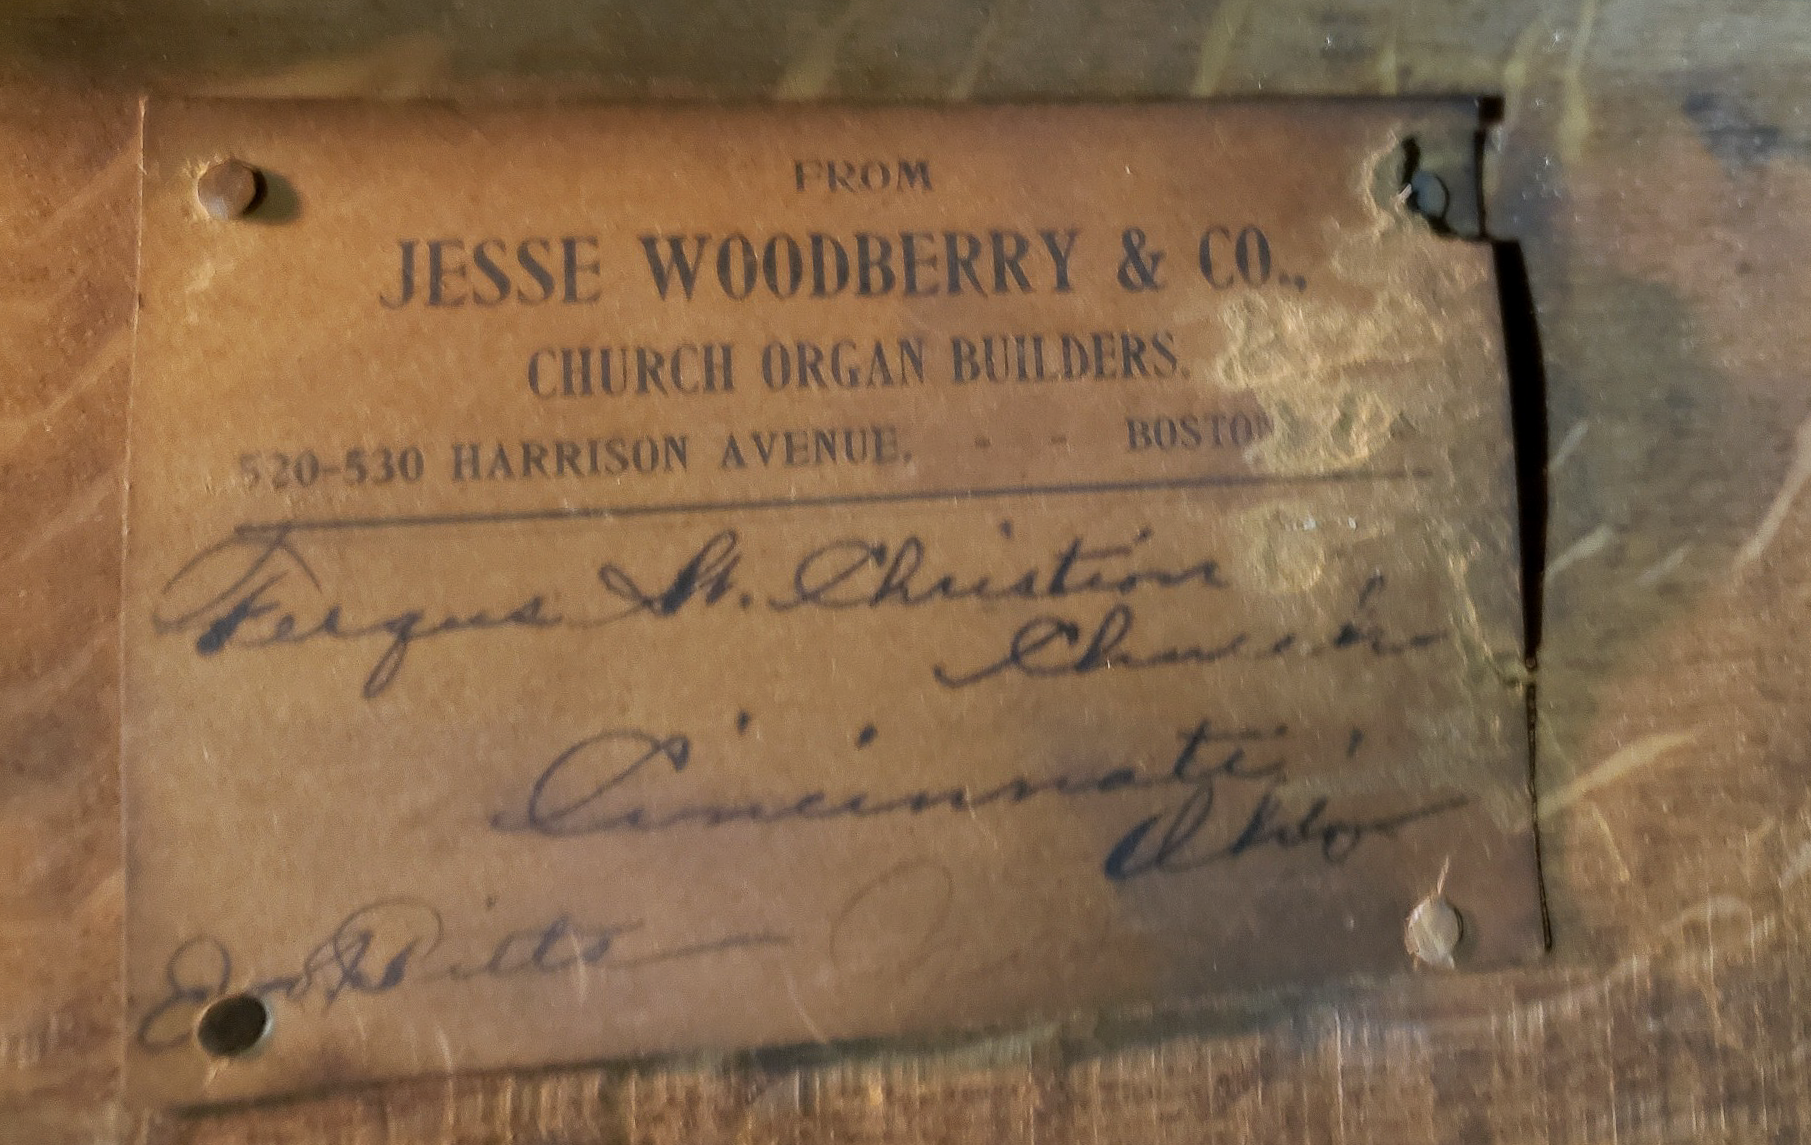 FROM
JESSE WOODBERRY & CO.,
CHURCH ORGAN BUILDERS.
520-530 HARRISON AVENUE, - - BOSTON
Fergus St. Christian
Church
Cincinnati
Ohio